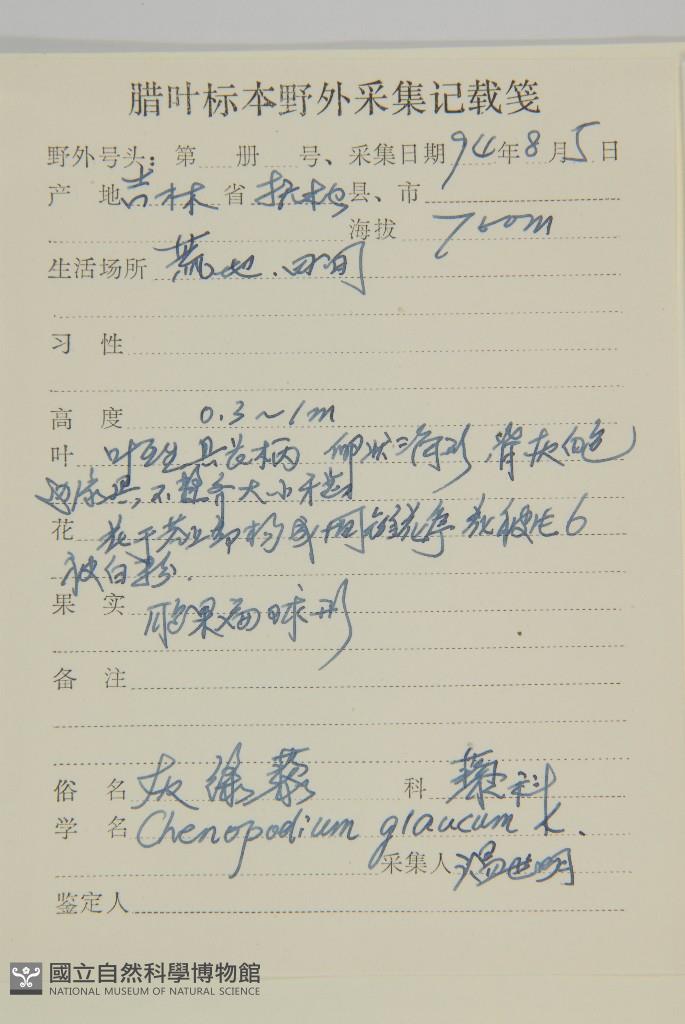 腊叶标本野外采集记载笺
野外号头：第 册 号、采集日期 94年8月5日
产 地 吉林 省 抚松 县、市
海拔 700m
生活场所 荒地、田间
习 性
高 度 0.3~1m
叶 叶互生具长柄 背灰白色
边缘具不整齐大小牙齿
花
被白粉.
果 实 胞果扁球形
备 注
俗 名 灰绿藜 科 藜科
学 名 Chenopodium glaucum L.
采集人 温世明
鉴定人
國立自然科學博物館
NATIONAL MUSEUM OF NATURAL SCIENCE